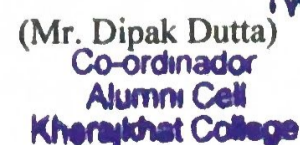 (Mr. Dipak Dutta)
Co-ordinador
Alumni Cell
Kherajkhat College